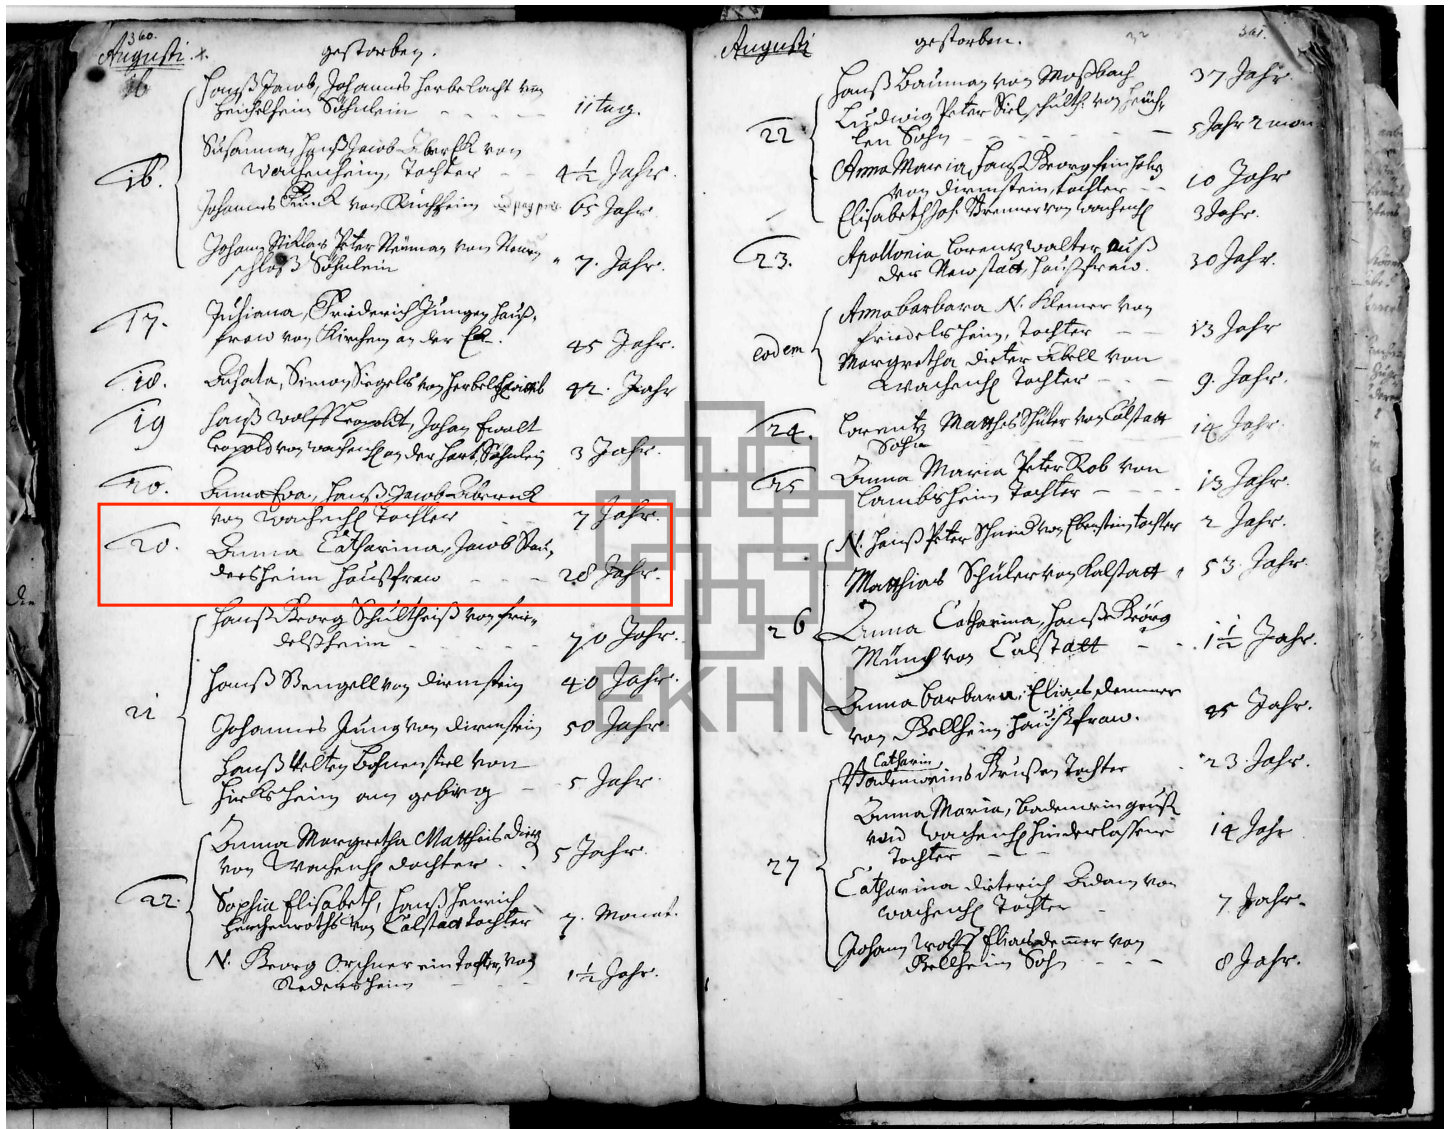 360.
Augusti
gestorben.
16
Hanß Jacob, Johannes Herbelacht von
Heichelheim Söhnlein
11 tag.
16.
Susanna, Hanß Jacob von
Wachenheim, Tochter
4½ Jahr.
Johannes von Kirchheim
65 Jahr.
Johann Niklas Peter Neuman von Neuen
schloß Söhnlein
7. Jahr.
17.
Juliana, Friederich Jungen Hauß-
fraw von Kirchen an der Eck.
45 Jahr.
18.
Agata, Simon Siegels von
42. Jahr
19
Hanß Wolff Leopoldt, Johan Ewalt
Leopold von Wachenh an der Hart, Söhnlein
3 Jahr.
20.
Anna Eva, Hanß Jacob
von Wachenh Tochter
7 Jahr.
20.
Anna Catharina, Jacob Stau-
dersheim Haußfraw
28 Jahr.
21
Hanß Georg Schultheiß von Frie-
delßheim
70 Jahr.
Hanß Stengell von Dirmstein
40 Jahr.
Johannes Jung von Dirmstein
50 Jahr.
Hanß Velten Bohnenstiel von
Hirksheim am gebirg
5 Jahr.
22.
Anna Margretha Matthis
von Wachenh Dochter
5 Jahr.
Sophia Elisabeth, Hanß Henrich
Herchenroths von Calstatt tochter
7. Monat.
N. Georg Orthner ein tochter, von
Redersheim
1½ Jahr.
Augusti
gestorben.
32
361.
22
Hanß Bauman von Moßbach
37 Jahr
Ludwig Peter Siel, Schulth. von Heuch-
len Sohn
5 Jahr 2 mon
Anna Maria, Hanß Georg
von Dirmstein, tochter
10 Jahr
Elisabeth Joh. Brenner von Wachenh
3 Jahr.
23.
Apollonia Lorentz Walter auß
der Newstatt, Haußfraw.
30 Jahr.
eodem
Anna Barbara N. Klemer von
Friedelsheim, Tochter
13 Jahr
Margretha Dieter Abell von
Wachenh Tochter
9. Jahr.
24.
Lorentz Matthes Schuler von Calstatt
Sohn
14 Jahr.
25
Anna Maria Peter Rob von
Lambsheim Tochter
13 Jahr.
26
N. Hanß Peter Schneid von Ebenstein tochter
2 Jahr.
Matthias Schuler von Kalstatt
53 Jahr.
Anna Catharina, Hanß Georg
Münch von Calstatt
1½ Jahr.
Anna Barbara, Elias Demmer
von Bellheim Haußfraw.
45 Jahr.
27
Catharin
Tochter
23 Jahr.
Anna Maria,
von Wachenh hinderlassene
Tochter
14 Jahr
Catharina Dieterich Adam von
Wachenh Tochter
7. Jahr.
Johann Wolff Elias Demer von
Bellheim Sohn
8 Jahr.
EKHN